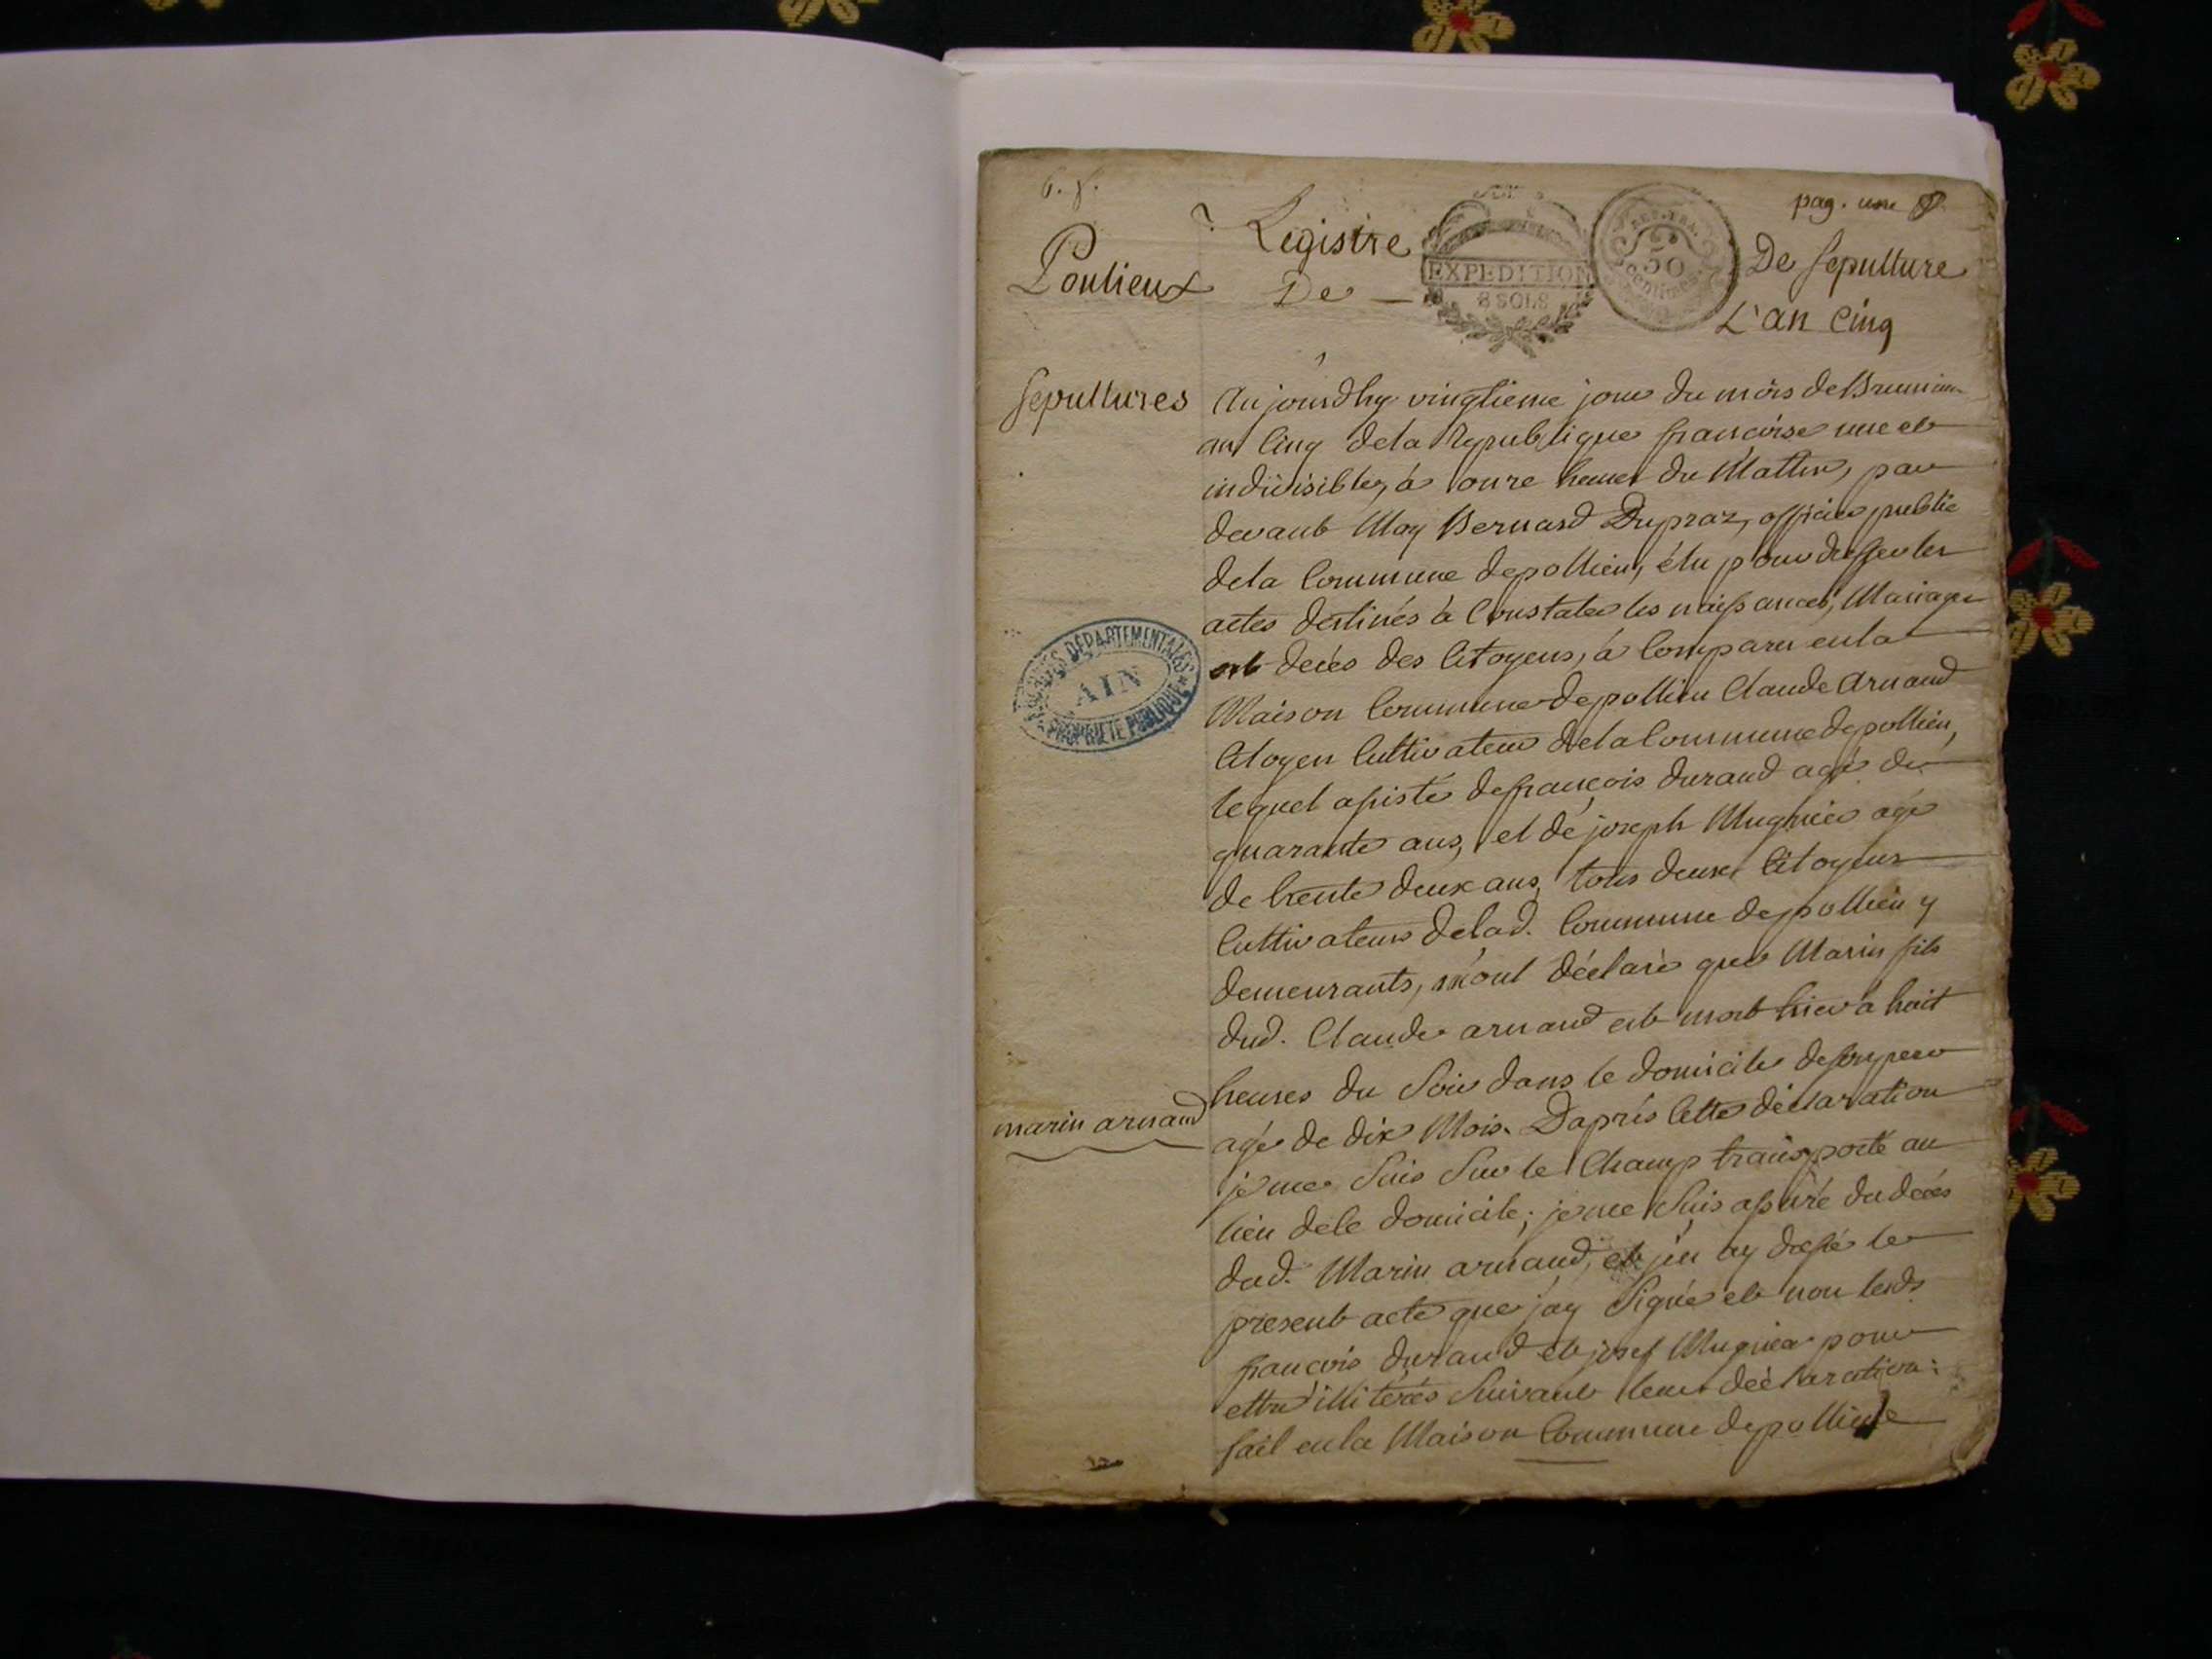 pag. une
Registre
De sepulture
Poulieux
De
L'an Cinq
EXPEDITION
8 SOLS
REP. FRA.
50
centimes
sepultures
Aujourdhy vingtieme jour du mois de Brumaire
an Cinq dela Republique francoise une et
indivisible, à onre heures du Matin, par
devant Moy Bernard Dupraz, officier public
dela Commune depollieu, élu pour dresser les
actes destinés à Constater les naissances, Mariages
et decés des Citoyens, à Comparu enla
Maison Commune depollieu Claude Arnaud
Citoyen Cultivateur dela Commune depollieu,
lequel assisté defrançois durand agé de
quarante ans, et de joseph Mugnier agé
de trente deux ans, tous deux Citoyens
Cultivateurs delad. Commune depollieu y
demeurants, m'ont déclaré que Marin fils
dud. Claude arnaud est mort hier à huit
heures du Soir dans le domicile desonpere
marin arnaud
agé de dix Mois. Daprés Cette déclaration
je me Suis Sur le Champ transporté au
lieu dece domicile; jeme Suis assuré du decés
dud. Marin arnaud, et j'en ay dressé le
present acte que j'ay Signé et non lesds
francois durand et josef Mugnier pour
ettre illiterés Suivant leur déclaration:
fait enla Maison Commune depollieu
ARCHIVES DÉPARTEMENTALES
AIN
PROPRIÉTÉ PUBLIQUE